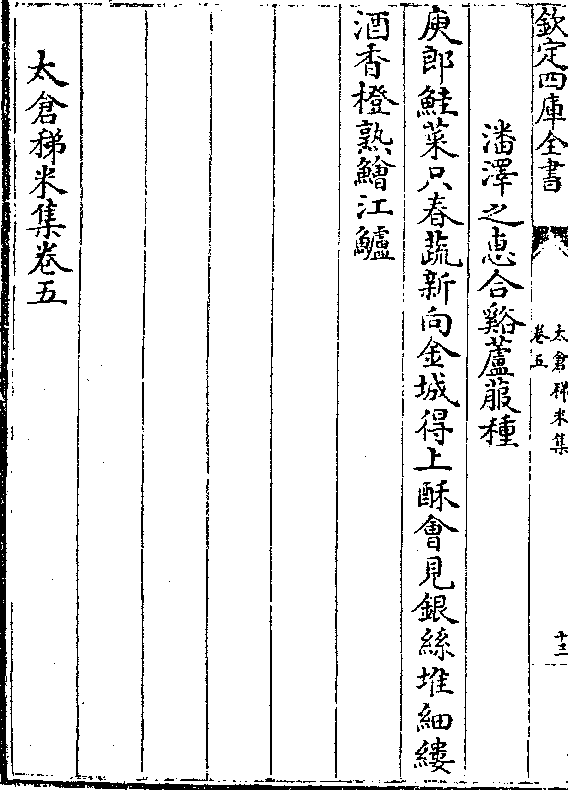 欽定四庫全書
太倉稊米集
卷五
十三
潘澤之惠合谿蘆菔種
庾郎鮭菜只春蔬新向金城得上酥會見銀絲堆細縷
酒香橙熟鱠江鱸
太倉稊米集卷五